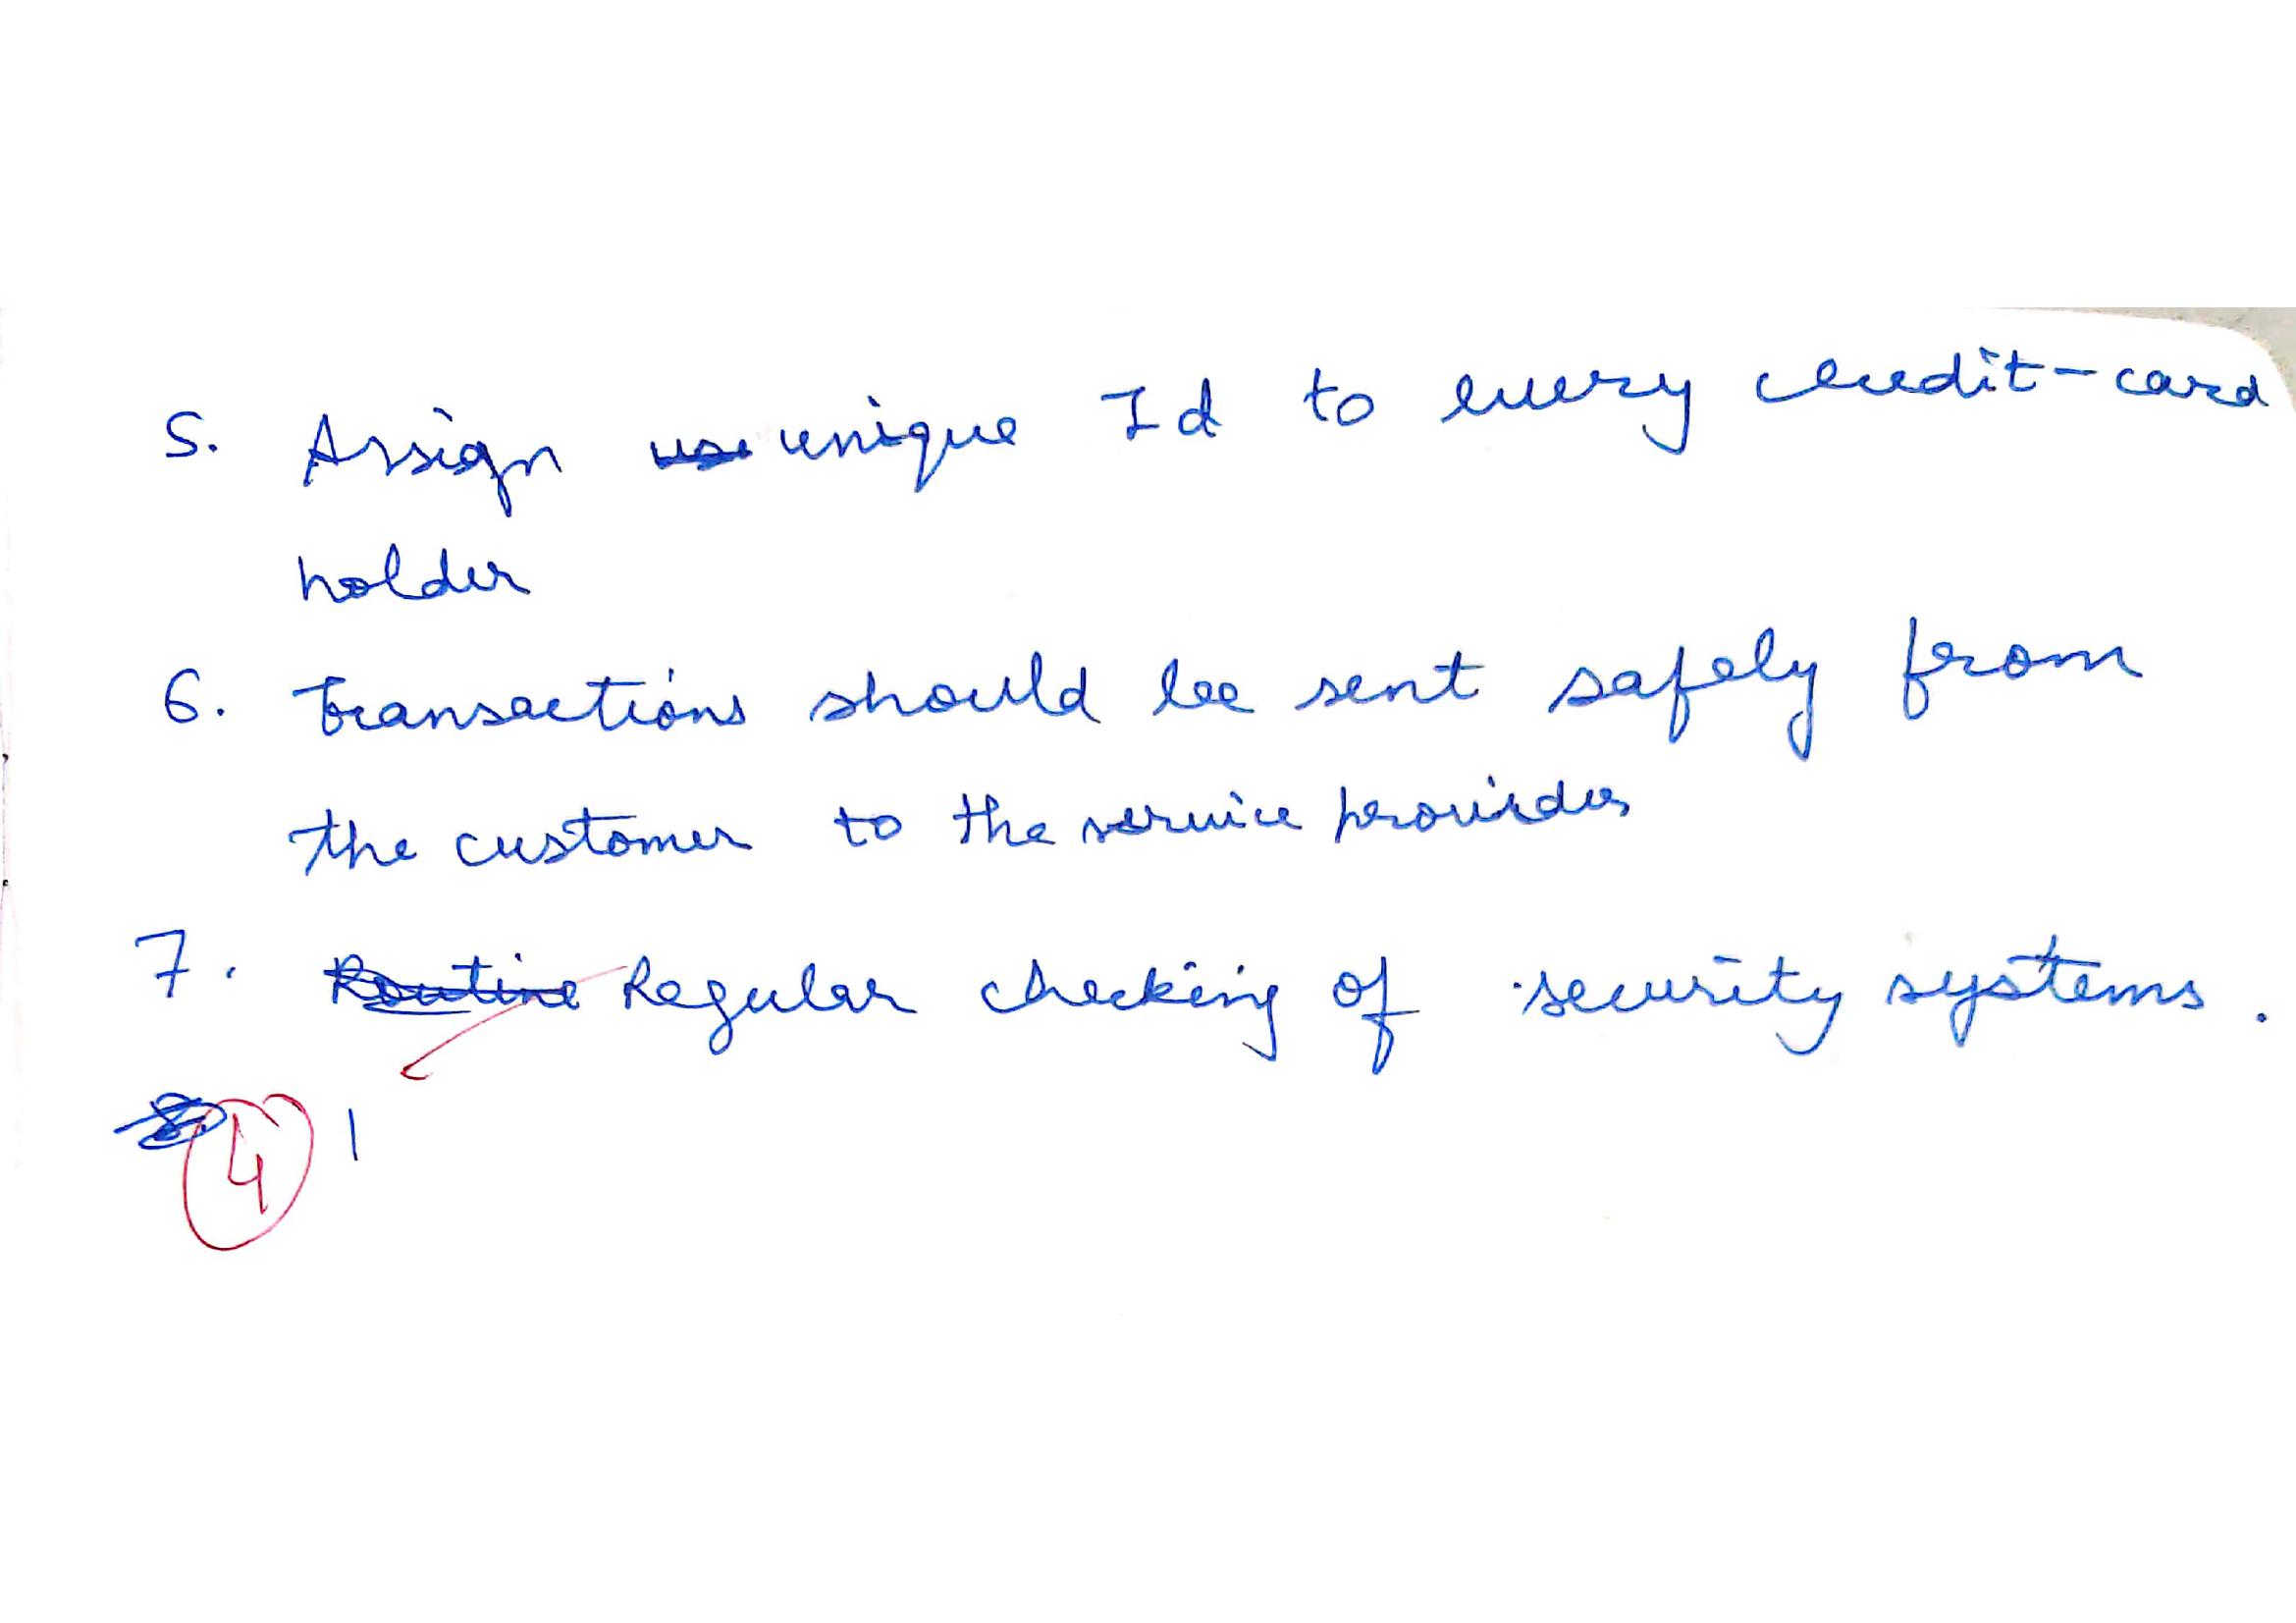 5. Assign unique Id to every credit-card
holder
6. Transactions should be sent safely from
the customer to the service provider
7. Routine Regular checking of security systems.
4